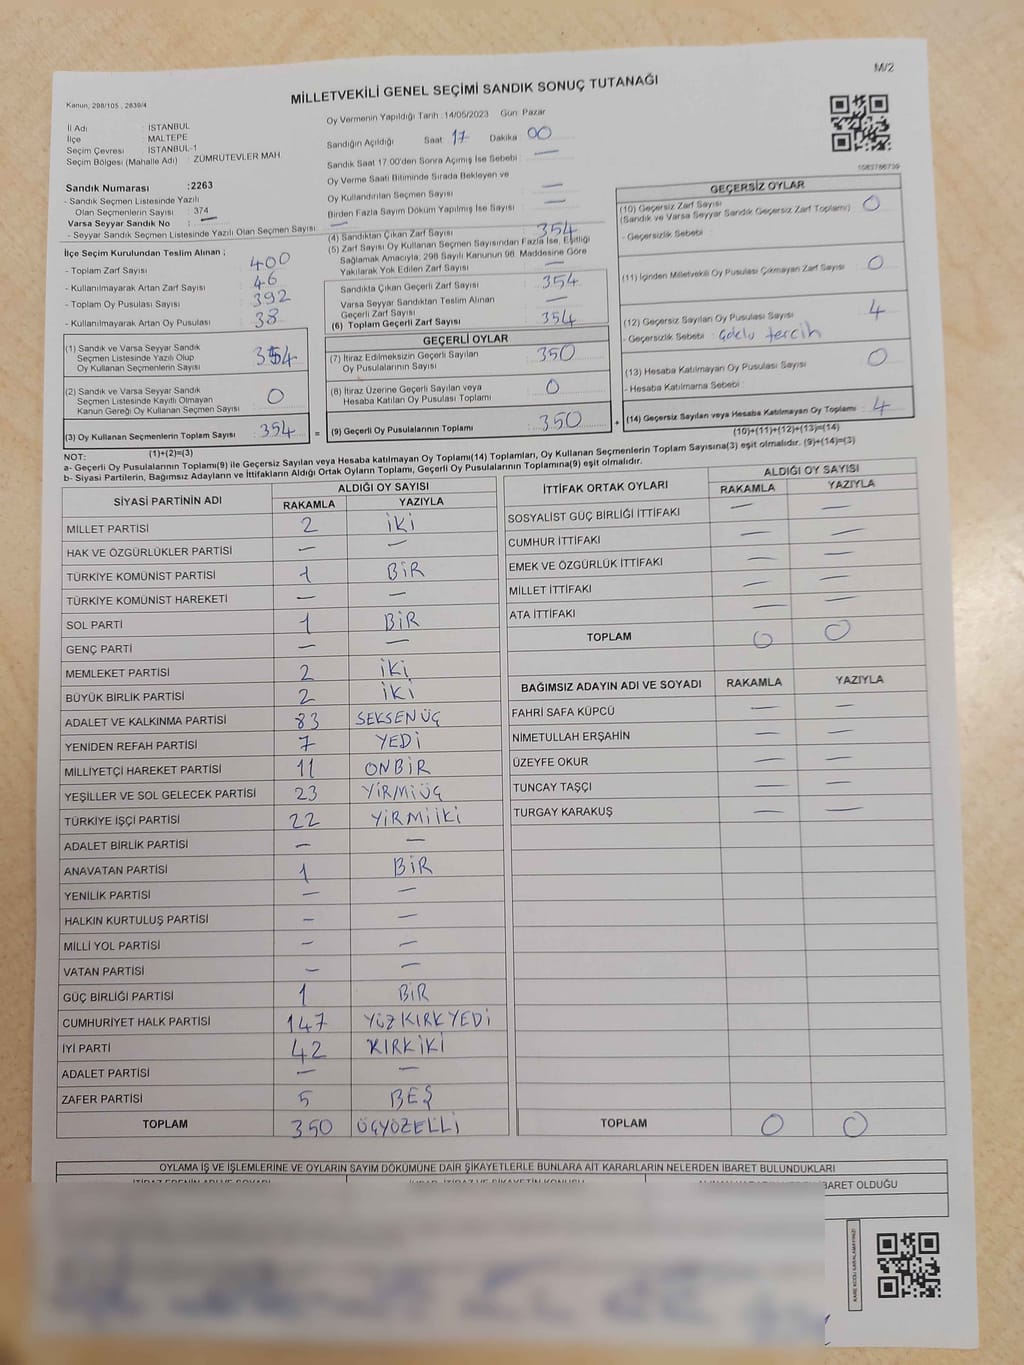 M/2
MİLLETVEKİLİ GENEL SEÇİMİ SANDIK SONUÇ TUTANAĞI
Kanun, 298/105 , 2839/4
İl Adı : İSTANBUL
İlçe : MALTEPE
Seçim Çevresi : İSTANBUL-1
Seçim Bölgesi (Mahalle Adı) : ZÜMRÜTEVLER MAH
Sandık Numarası :2263
- Sandık Seçmen Listesinde Yazılı
Olan Seçmenlerin Sayısı : 374
Varsa Seyyar Sandık No : —
- Seyyar Sandık Seçmen Listesinde Yazılı Olan Seçmen Sayısı : —
İlçe Seçim Kurulundan Teslim Alınan ;
- Toplam Zarf Sayısı : 400
- Kullanılmayarak Artan Zarf Sayısı : 46
- Toplam Oy Pusulası Sayısı : 392
- Kullanılmayarak Artan Oy Pusulası : 38
(1) Sandık ve Varsa Seyyar Sandık
Seçmen Listesinde Yazılı Olup
Oy Kullanan Seçmenlerin Sayısı : 354
(2) Sandık ve Varsa Seyyar Sandık
Seçmen Listesinde Kayıtlı Olmayan
Kanun Gereği Oy Kullanan Seçmen Sayısı : 0
(3) Oy Kullanan Seçmenlerin Toplam Sayısı : 354
(1)+(2)=(3)
Oy Vermenin Yapıldığı Tarih : 14/05/2023 Gün: Pazar
Sandığın Açıldığı Saat : 17 Dakika : 00
Sandık Saat 17:00'den Sonra Açımış İse Sebebi : —
Oy Verme Saati Bitiminde Sırada Bekleyen ve
Oy Kullandırılan Seçmen Sayısı : —
Birden Fazla Sayım Döküm Yapılmış İse Sayısı : —
(4) Sandıktan Çıkan Zarf Sayısı : 354
(5) Zarf Sayısı Oy Kullanan Seçmen Sayısından Fazla İse, Eşitliği
Sağlamak Amacıyla, 298 Sayılı Kanunun 98. Maddesine Göre
Yakılarak Yok Edilen Zarf Sayısı : —
Sandıkta Çıkan Geçerli Zarf Sayısı : 354
Varsa Seyyar Sandıktan Teslim Alınan
Geçerli Zarf Sayısı : —
(6) Toplam Geçerli Zarf Sayısı : 354
GEÇERLİ OYLAR
(7) İtiraz Edilmeksizin Geçerli Sayılan
Oy Pusulalarının Sayısı : 350
(8) İtiraz Üzerine Geçerli Sayılan veya
Hesaba Katılan Oy Pusulası Toplamı : 0
= (9) Geçerli Oy Pusulalarının Toplamı : 350 +
GEÇERSİZ OYLAR
(10) Geçersiz Zarf Sayısı
(Sandık ve Varsa Seyyar Sandık Geçersiz Zarf Toplamı) : 0
- Geçersizlik Sebebi :
(11) İçinden Milletvekili Oy Pusulası Çıkmayan Zarf Sayısı : 0
(12) Geçersiz Sayılan Oy Pusulası Sayısı : 4
- Geçersizlik Sebebi : çoklu tercih
(13) Hesaba Katılmayan Oy Pusulası Sayısı : 0
- Hesaba Katılmama Sebebi :
(14) Geçersiz Sayılan veya Hesaba Katılmayan Oy Toplamı : 4
(10)+(11)+(12)+(13)=(14)
NOT:
a- Geçerli Oy Pusulalarının Toplamı(9) ile Geçersiz Sayılan veya Hesaba Katılmayan Oy Toplamı(14) Toplamları, Oy Kullanan Seçmenlerin Toplam Sayısına(3) eşit olmalıdır. (9)+(14)=(3)
b- Siyasi Partilerin, Bağımsız Adayların ve İttifakların Aldığı Ortak Oyların Toplamı, Geçerli Oy Pusulalarının Toplamına(9) eşit olmalıdır.
SİYASİ PARTİNİN ADI ALDIĞI OY SAYISI
RAKAMLA YAZIYLA
MİLLET PARTİSİ 2 İKİ
HAK VE ÖZGÜRLÜKLER PARTİSİ — —
TÜRKİYE KOMÜNİST PARTİSİ 1 BİR
TÜRKİYE KOMÜNİST HAREKETİ — —
SOL PARTİ 1 BİR
GENÇ PARTİ — —
MEMLEKET PARTİSİ 2 İKİ
BÜYÜK BİRLİK PARTİSİ 2 İKİ
ADALET VE KALKINMA PARTİSİ 83 SEKSEN ÜÇ
YENİDEN REFAH PARTİSİ 7 YEDİ
MİLLİYETÇİ HAREKET PARTİSİ 11 ONBİR
YEŞİLLER VE SOL GELECEK PARTİSİ 23 YİRMİÜÇ
TÜRKİYE İŞÇİ PARTİSİ 22 YİRMİİKİ
ADALET BİRLİK PARTİSİ — —
ANAVATAN PARTİSİ 1 BİR
YENİLİK PARTİSİ — —
HALKIN KURTULUŞ PARTİSİ — —
MİLLİ YOL PARTİSİ — —
VATAN PARTİSİ — —
GÜÇ BİRLİĞİ PARTİSİ 1 BİR
CUMHURİYET HALK PARTİSİ 147 YÜZ KIRK YEDİ
İYİ PARTİ 42 KIRK İKİ
ADALET PARTİSİ — —
ZAFER PARTİSİ 5 BEŞ
TOPLAM 350 ÜÇYÜZELLİ
İTTİFAK ORTAK OYLARI ALDIĞI OY SAYISI
RAKAMLA YAZIYLA
SOSYALİST GÜÇ BİRLİĞİ İTTİFAKI — —
CUMHUR İTTİFAKI — —
EMEK VE ÖZGÜRLÜK İTTİFAKI — —
MİLLET İTTİFAKI — —
ATA İTTİFAKI — —
TOPLAM 0 0
BAĞIMSIZ ADAYIN ADI VE SOYADI RAKAMLA YAZIYLA
FAHRİ SAFA KÜPCÜ — —
NİMETULLAH ERŞAHİN — —
ÜZEYFE OKUR — —
TUNCAY TAŞÇI — —
TURGAY KARAKUŞ — —
TOPLAM 0 0
OYLAMA İŞ VE İŞLEMLERİNE VE OYLARIN SAYIM DÖKÜMÜNE DAİR ŞİKAYETLERLE BUNLARA AİT KARARLARIN NELERDEN İBARET BULUNDUKLARI
İBARET OLDUĞU